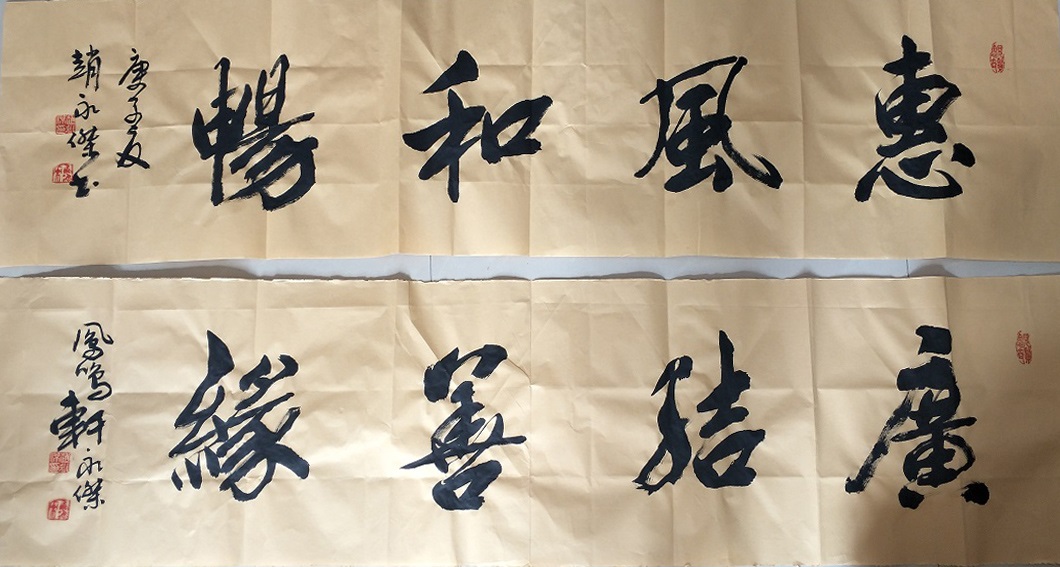 惠風和暢
庚子夏
趙永傑书
廣結善緣
鳳鳴軒永傑